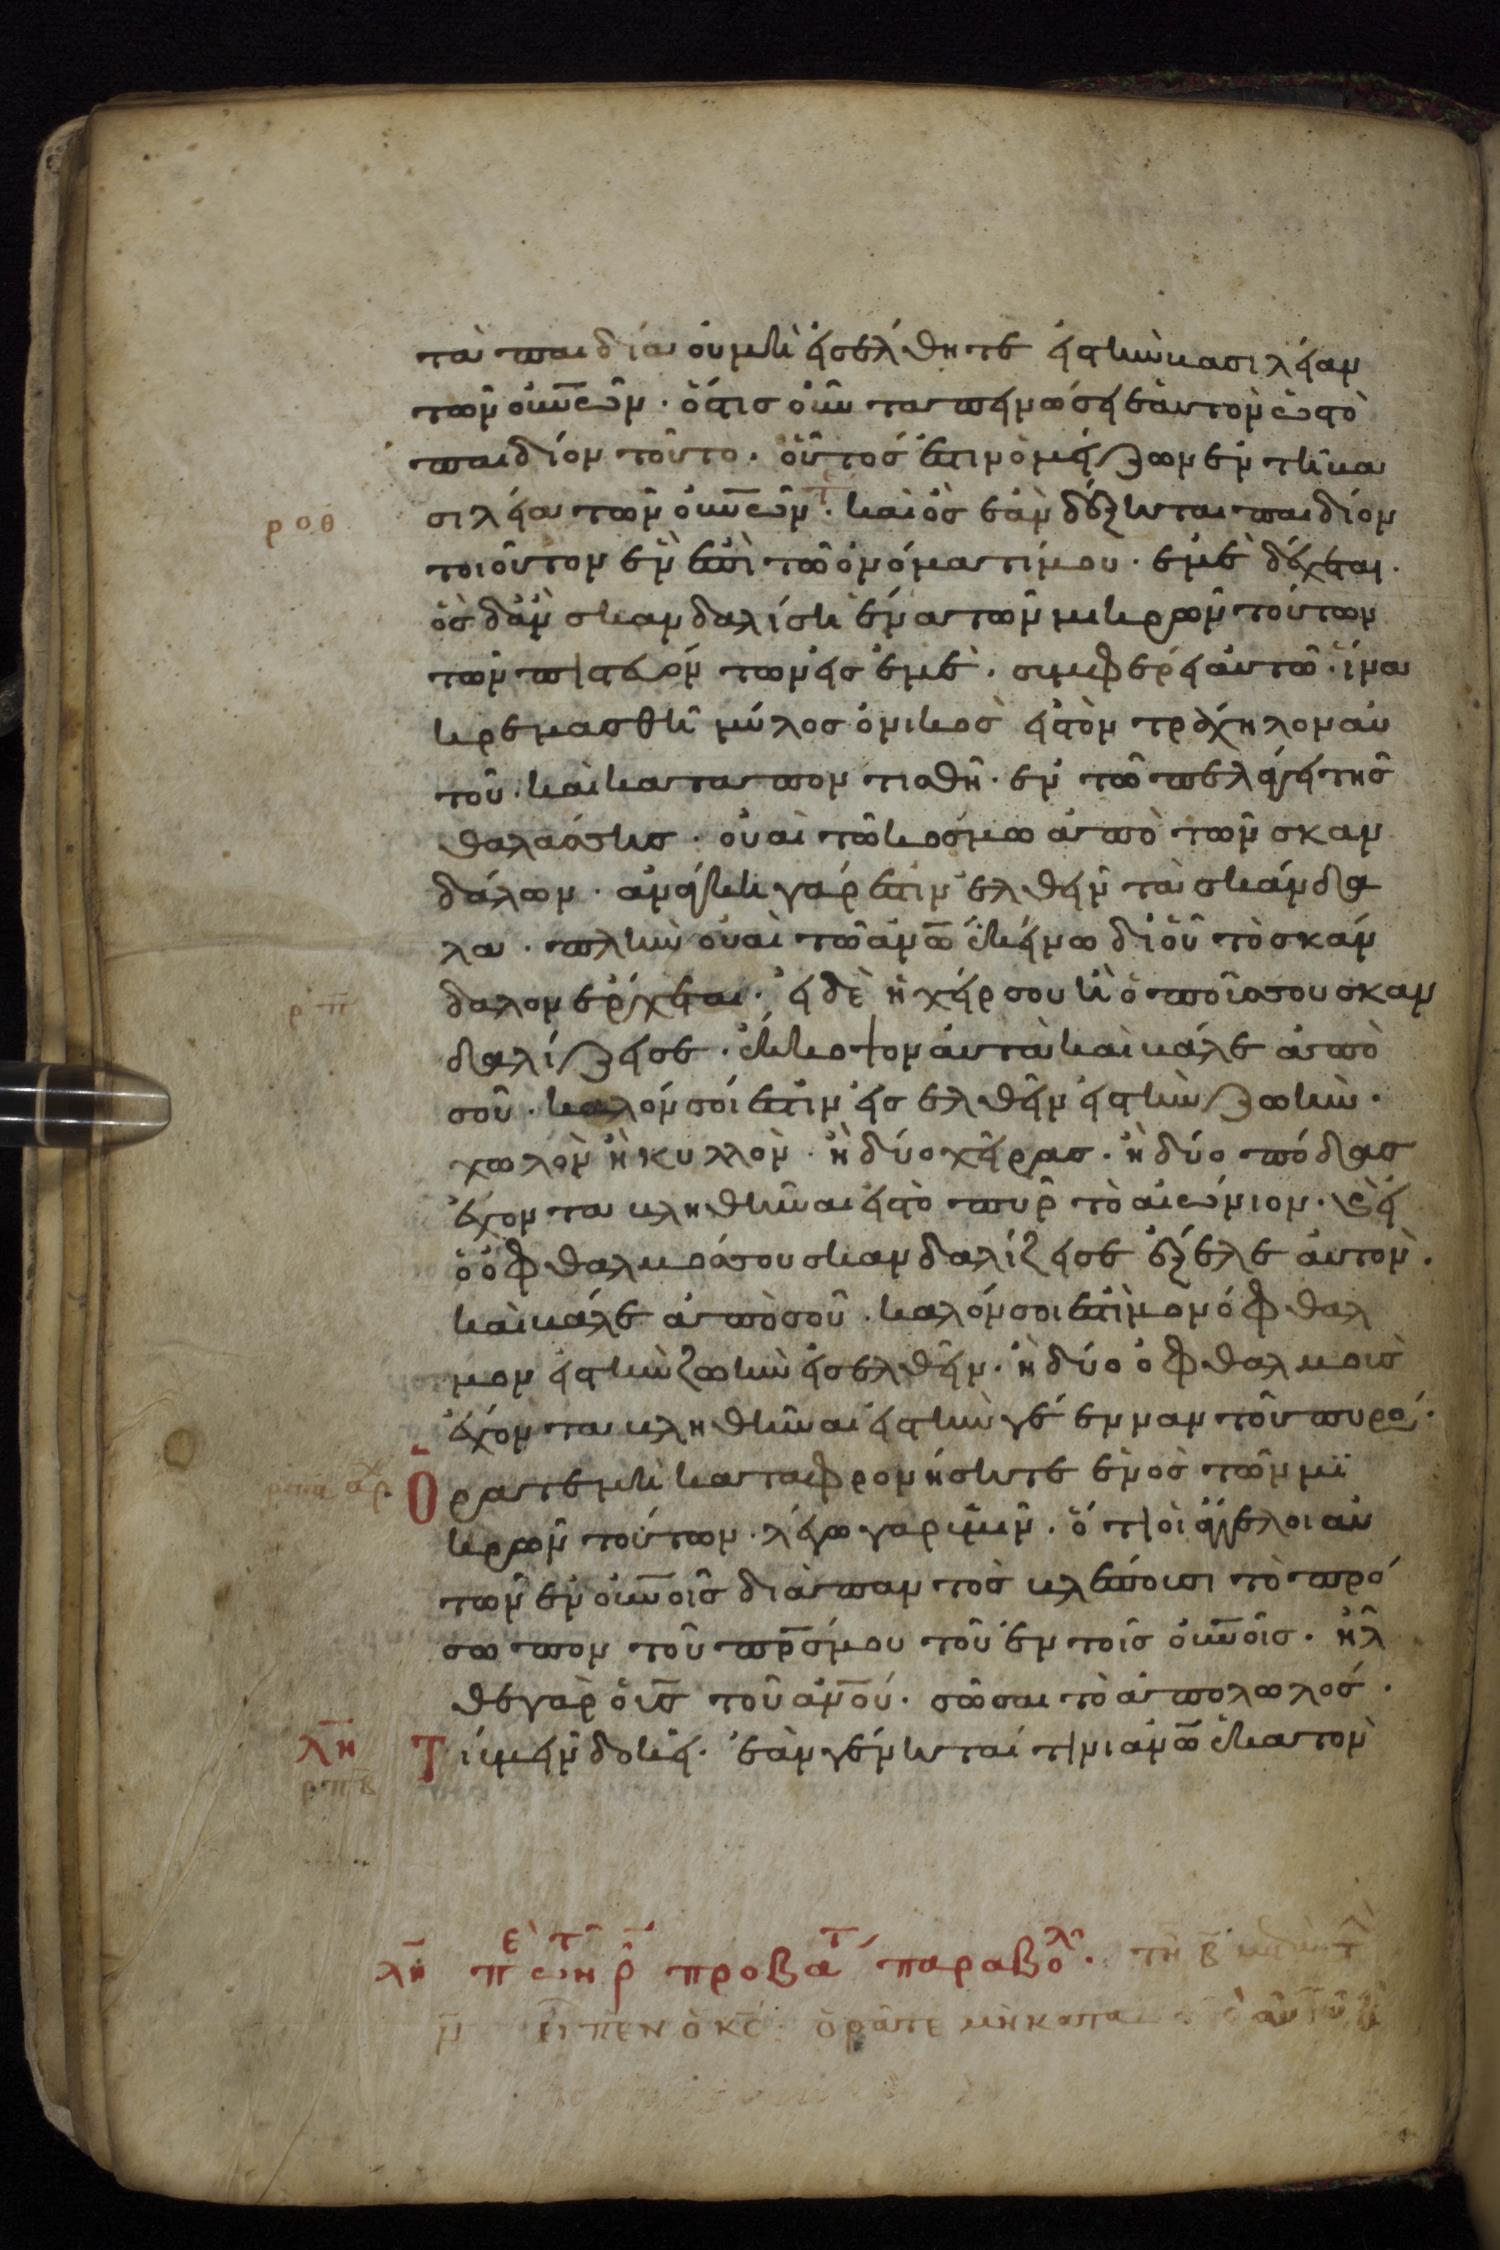 τὰ παιδία οὐ μὴ εἰσέλθητε εἰς τὴν βασιλείαν
τῶν οὐν͞ων̂ · ὅστις οὖν ταπεινώσει ἑαυτὸν ὡς τὸ
παιδίον τοῦτο · οὗτός ἐστιν ὁ μείζων ἐν τῆ βα
ροθ σιλεία τῶν οὐν͞ων̂ · καὶ ὃς ἐὰν δέξηται παιδίον
τοιοῦτον ἓν ἐπὶ τῶ ὀνόματί μου · ἐμὲ δέχεται ·
ὃς δ ἂν σκανδαλίση ἕνα τῶν μικρῶν τούτων
τῶν πιστευόντων εἰς ἐμὲ · συμφέρει αὐτῶ · ἵνα
κρεμασθῆ μύλος ὀνικὸς εἰς τὸν τράχηλον αὐ
τοῦ · καὶ καταποντισθῆ · ἐν τῶ πελάγει τῆς
θαλάσσης · οὐαὶ τῶ κόσμω ἀπὸ τῶν σκαν
δάλων · ἀνάγκη γάρ ἐστιν ἐλθεῖν τὰ σκάνδα
λα · πλὴν οὐαὶ τῶ ἀν͞ω ἐκείνω δι οὗ τὸ σκάν
ρπ δαλον ἔρχεται · εἰ δὲ ἡ χείρ σου ἢ ὁ ποῦς σου σκαν
δαλίζει σε · ἔκκοψον αὐτὰ καὶ βάλε ἀπὸ
σοῦ · καλόν σοί ἐστιν εἰσελθεῖν εἰς τὴν ζωὴν ·
χωλὸν ἢ κυλλὸν · ἢ δύο χεῖρας · ἢ δύο πόδας
ἔχοντα βληθῆναι εἰς τὸ πῦρ τὸ αἰώνιον · καὶ εἰ
ὁ ὀφθαλμός σου σκανδαλίζει σε ἔξελε αὐτὸν ·
καὶ βάλε ἀπὸ σοῦ · καλόν σοι ἐστὶ μονόφθαλ
μον εἰς τὴν ζωὴν εἰσελθεῖν · ἢ δύο ὀφθαλμοὺς
ἔχοντα βληθῆναι εἰς τὴν γέενναν τοῦ πυρός ·
ρπα αρχ Ὁρατε μὴ καταφρονήσητε ἑνὸς τῶν μι
κρῶν τούτων · λέγω γαρ ὑμῖν · ὅτι οἱ ἄγγελοι αὐ
τῶν ἐν οὐν͞οις διὰ παντὸς βλέπουσι τὸ πρό
σωπον τοῦ πρ͞σ μου τοῦ ἐν τοῖς οὐν͞οῖς · ἦλ
θε γαρ ὁ υἱ͞ς τοῦ ἀν͞ου · σῶσαι τὸ ἀπολωλός ·
λη Τί ὑμῖν δοκεῖ · ἐὰν γένηται τινι ἀν͞ω ἑκατὸν
ρπβ
λη πε τω̂ν ρ προβατ παραβολ ·
εἶπεν ὁ κ͞ς · ὁρᾶτε μὴ κατα